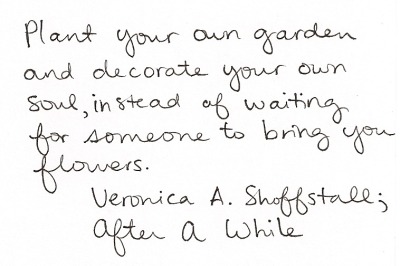 Plant your own garden
and decorate your own
soul, instead of waiting
for someone to bring you
flowers.
Veronica A. Shoffstall;
After A While